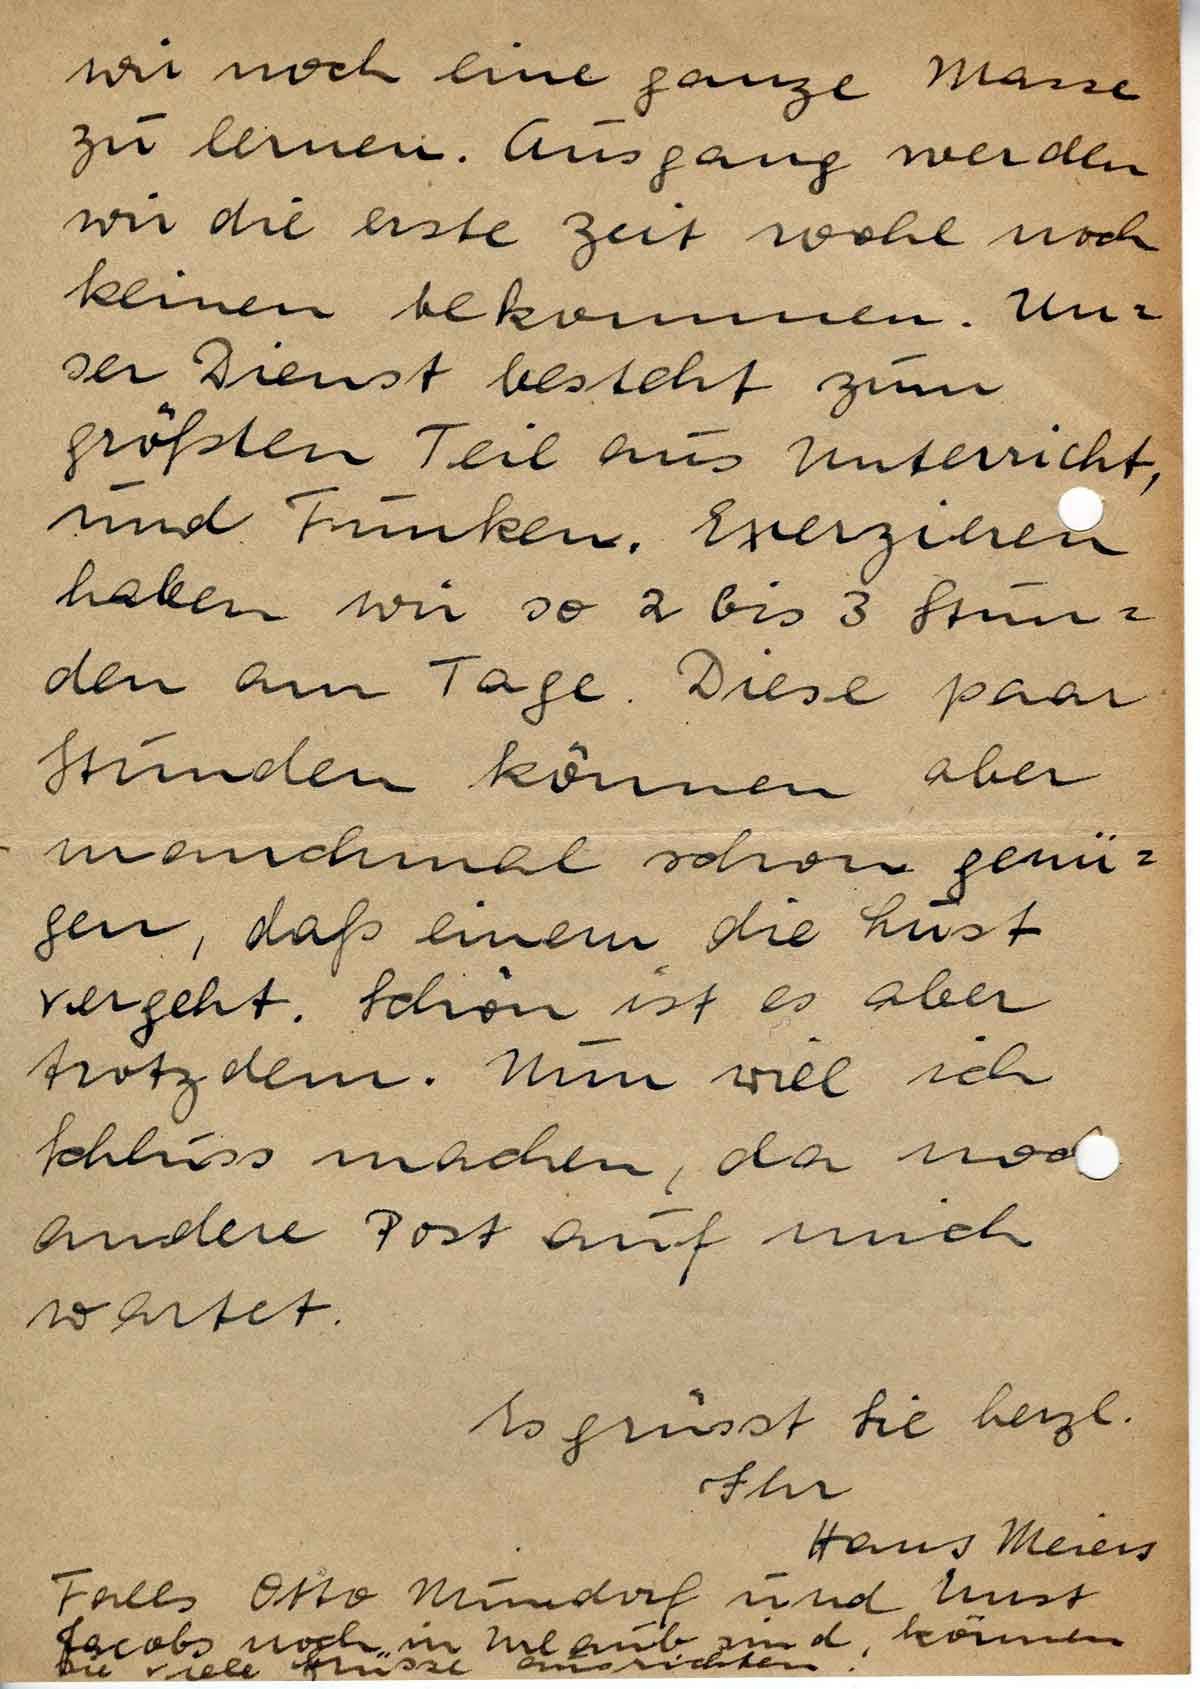 wir noch eine ganze Masse
zu lernen. Ausgang werden
wir die erste Zeit wohl noch
keinen bekommen. Un=
ser Dienst besteht zum
größten Teil aus Unterricht,
und Funken. Exerzieren
haben wir so 2 bis 3 Stun=
den am Tage. Diese paar
Stunden können aber
manchmal schon genü=
gen, daß einem die Lust
vergeht. Schön ist es aber
trotzdem. Nun will ich
Schluss machen, da noch
andere Post auf mich
wartet.
Es grüsst Sie herzl.
Ihr
Hans Meiers
Falls Otto Mundorf und
Jacobs noch in Urlaub sind, können
Sie viele Grüsse ausrichten.